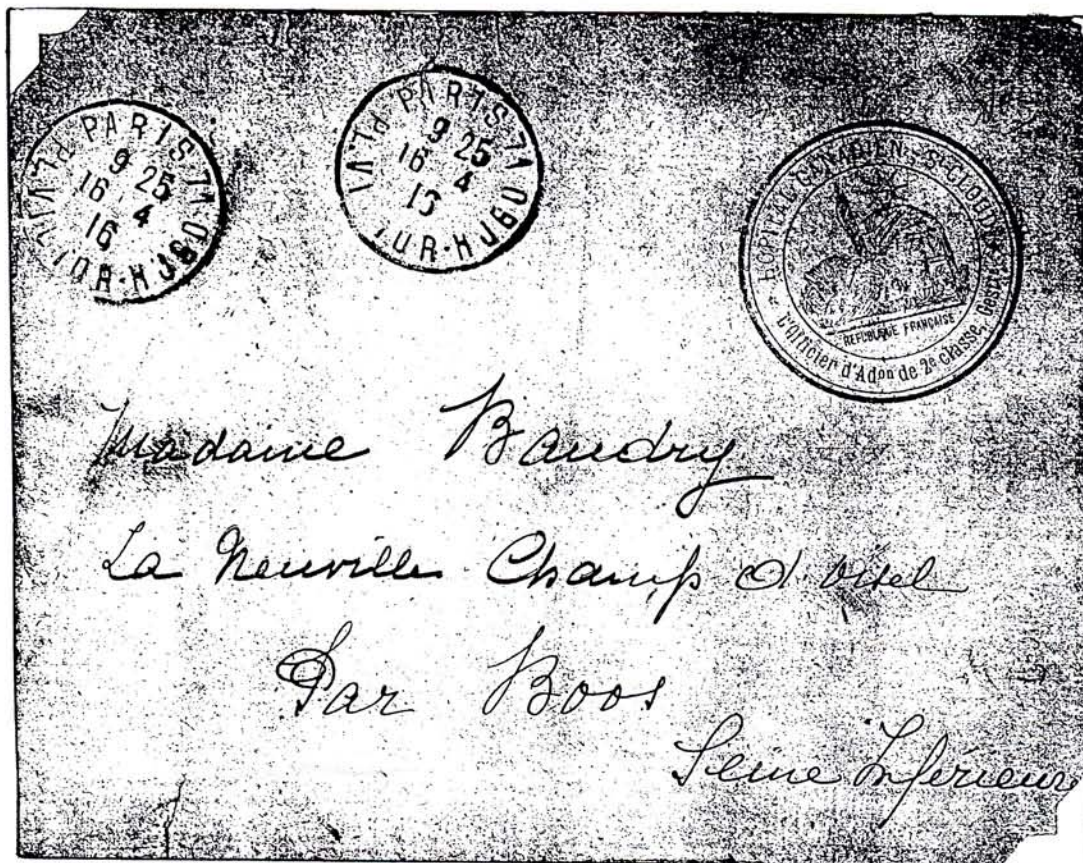 PARIS 71
9 25
16 4
16
PL. VICTOR-HUGO
PARIS 71
9 25
16 4
16
PL. VICTOR-HUGO
HOPITAL CANADIEN - St CLOUD
REPUBLIQUE FRANÇAISE
L'Officier d'Adon de 2e classe, Gestre
Madame Baudry
La Neuville Champ d'oisel
Par Boos
Seine Inférieure